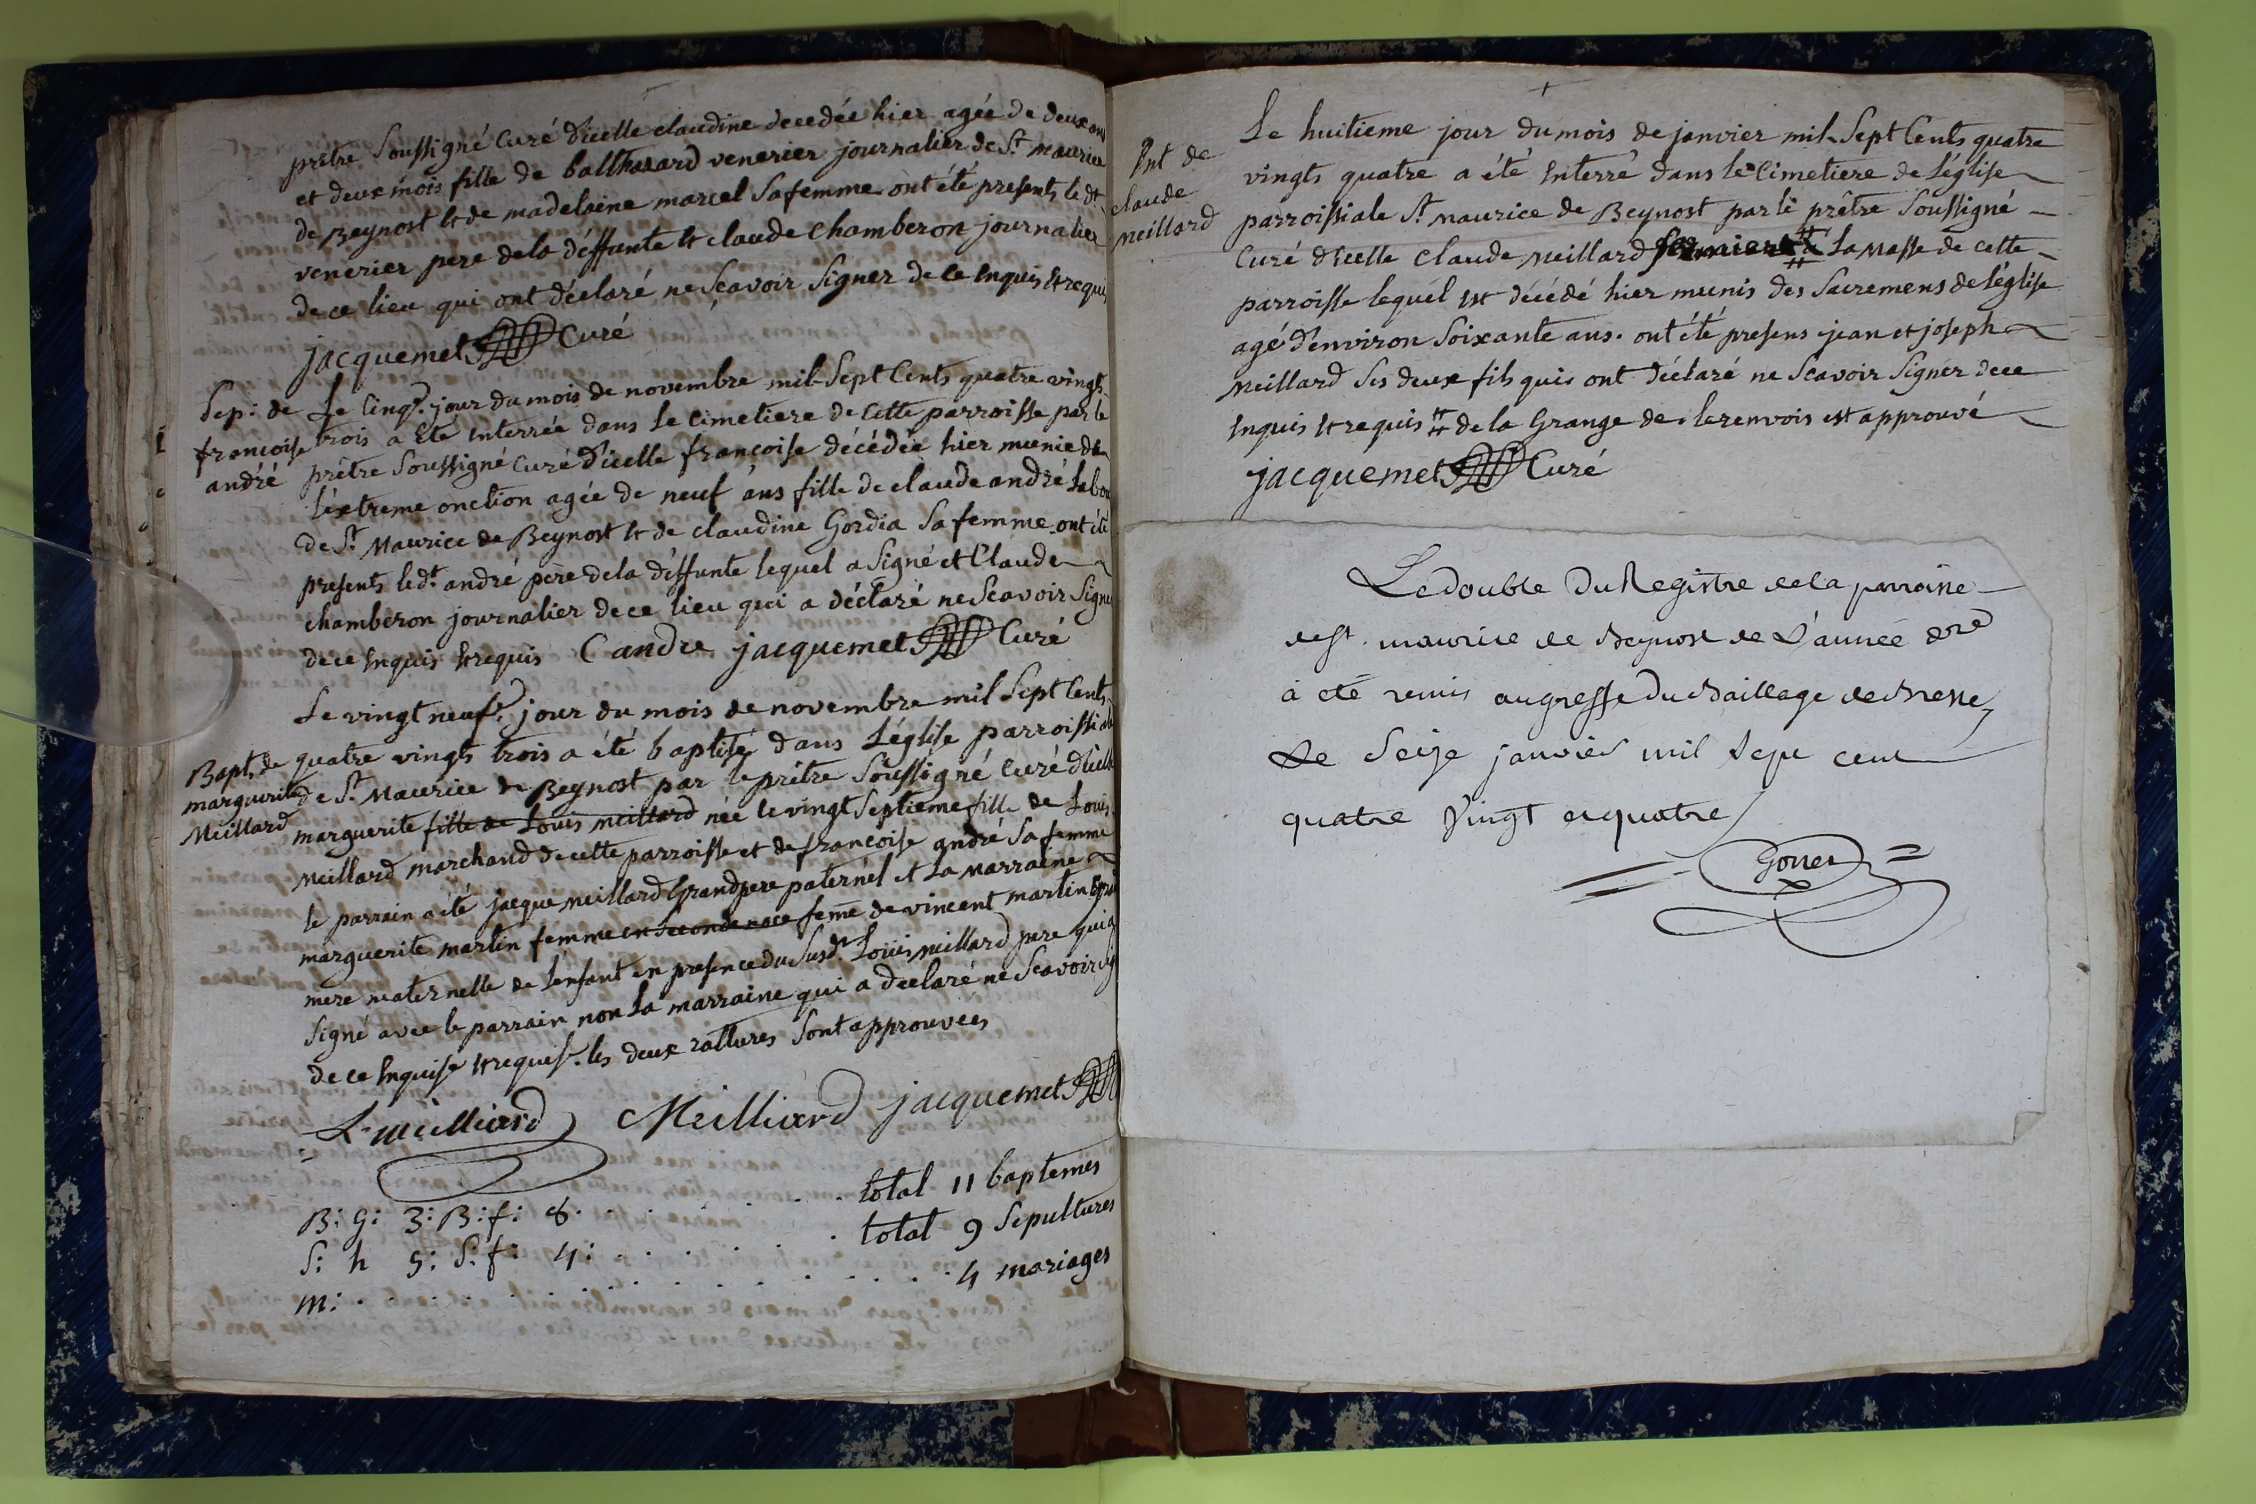 prêtre Soussigné Curé d'icelle claudine decedée hier agée de deux ans
et deux mois fille de balthazard venerier journalier de St. maurice
de Beynost et de madelaine marcel Sa femme ont été presents le dt.
venerier pere de la déffunte et claude chamberon journalier
de ce lieu qui ont déclaré ne Scavoir Signer de ce Enquis et requis
jacquemet Curé
Sep: de
françoise
andré
Le Cinqe. jour du mois de novembre mil Sept Cents quatre vingts
trois a Eté Enterrée dans le Cimetiere de Cette parroisse par le
prêtre Soussigné Curé d'icelle françoise décédée hier munie de
l'extreme onction agée de neuf ans fille de claude andré Labou
de St. Maurice de Beynost et de claudine Gordia Sa femme ont été
presents le dt. andré père de la déffunte lequel a Signé et Claude
chamberon journalier de ce lieu qui a déclaré ne Scavoir Signer
de ce Enquis et requis C andre jacquemet Curé
Bapt. de
marguerite
Meillard
Le vingt neufe. jour du mois de novembre mil Sept Cents
quatre vingts trois a été baptisée dans L'église parroissiale
de St. Maurice de Beynost par le prêtre Soussigné Curé d'icelle
marguerite fille de Louis meillard née le vingt Septieme fille de Louis
Meillard marchand de cette parroisse et de françoise andré Sa femme
le parrain a été jacque meillard Grandpere paternel et La Marraine
marguerite martin femme en Seconde noce feme de vincent martin
mere maternelle de L'enfant en presence du Susdt. Louis meillard pere qui a
Signé avec le parrain non La marraine qui a declaré ne Scavoir Sig
de ce Enquise et requise. les deux rattures Sont approuvées
L. meilliard Meilliard jacquemet
B: G: 3: B: f: 8. total 11 baptemes
S: h 5: S: f: 4: total 9 Sepultures
M: 4 mariages
Ent de
claude
Meillard
Le huitieme jour du mois de janvier mil Sept Cents quatre
vingts quatre a été Enterré dans le Cimetiere de L'église
parroissiale St. Maurice de Beynost par le prêtre Soussigné
Curé d'icelle Claude Meillard fermier # La Masse de cette
parroisse lequel est décédé hier munis des Sacremens de l'église
agé d'environ Soixante ans. ont été presens jean et joseph
Meillard Ses deux fils qui ont déclaré ne Scavoir Signer de ce
Enquis et requis # de la Grange de. le renvois est approuvé
jacquemet Curé
Le double Du Registre de la parroisse
de St. maurice de Beynost de L'année dre
à eté remis au greffe Du Baillage de Bresse
Le Seize janvier mil Sept cent
quatre Vingt et quatre